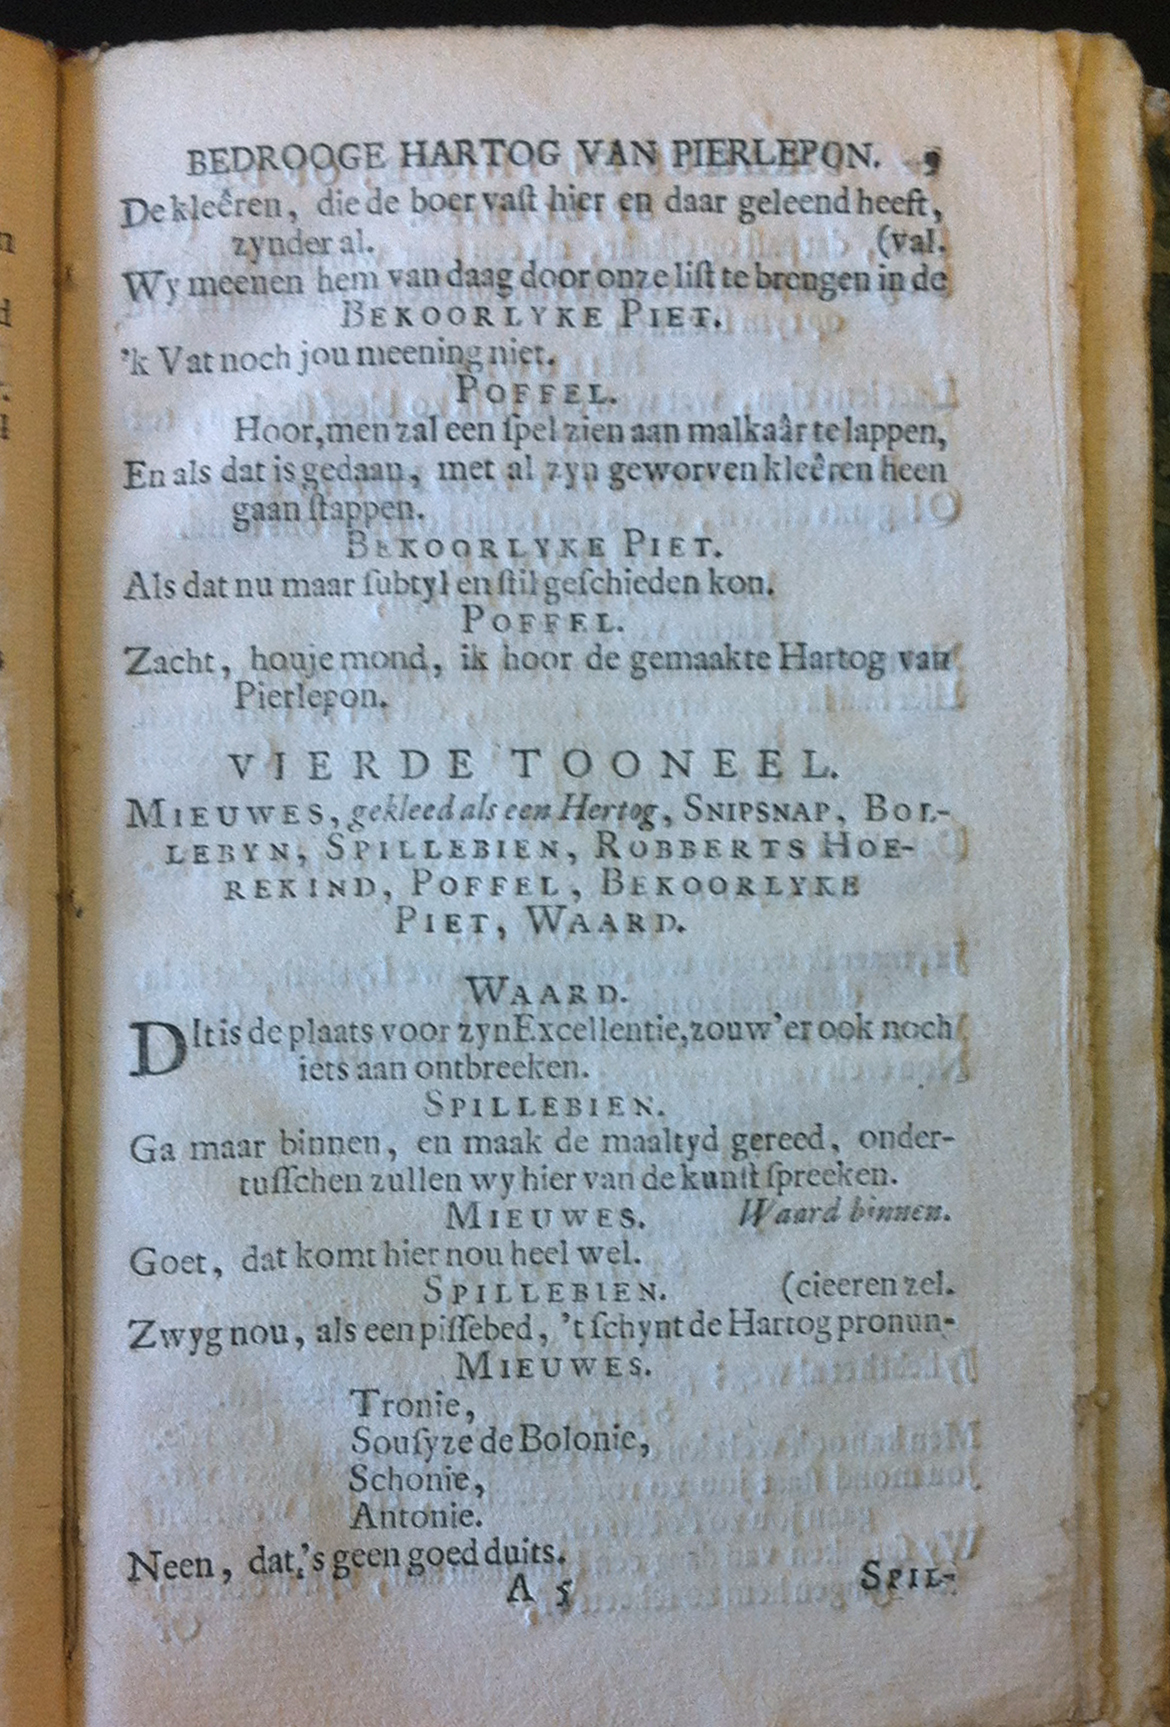 BEDROOGE HARTOG VAN PIERLEPON. 9
De kleêren, die de boer vaſt hier en daar geleend heeft,
zynder al. (val.
Wy meenen hem van daag door onze liſt te brengen in de
BEKOORLYKE PIET.
'k Vat noch jou meening niet.
POFFEL.
Hoor, men zal een ſpel zien aan malkaâr te lappen,
En als dat is gedaan, met al zyn geworven kleêren heen
gaan ſtappen.
BEKOORLYKE PIET.
Als dat nu maar ſubtyl en ſtil geſchieden kon.
POFFEL.
Zacht, houje mond, ik hoor de gemaakte Hartog van
Pierlepon.
VIERDE TOONEEL.
MIEUWES, gekleed als een Hertog, SNIPSNAP, BOL-
LEBYN, SPILLEBIEN, ROBBERTS HOE-
REKIND, POFFEL, BEKOORLYKE
PIET, WAARD.
WAARD.
DIt is de plaats voor zyn Excellentie, zouw'er ook noch
iets aan ontbreeken.
SPILLEBIEN.
Ga maar binnen, en maak de maaltyd gereed, onder-
tuſſchen zullen wy hier van de kunſt ſpreeken.
MIEUWES. Waard binnen.
Goet, dat komt hier nou heel wel.
SPILLEBIEN. (cieeren zel.
Zwyg nou, als een piſſebed, 't ſchynt de Hartog pronun-
MIEUWES.
Tronie,
Souſyze de Bolonie,
Schonie,
Antonie.
Neen, dat's geen goed duits.
A 5 SPIL-